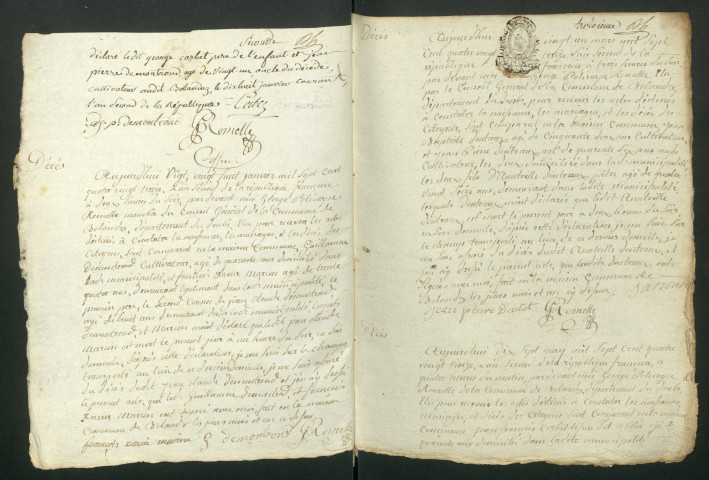 Seconde
déclaré ledit george carlet pere de l'enfant et jean
pierre demontrond agé de vingt un oncle du décédé
cultivateur audit Bolandoz, le dixhuit janvier courant
l'an second de la République
j. p. demontrond Romelle
Décès
Aujourdhui Vingt huit janvier mil Sept Cent
quatre vingt treize, L'an Second de la république francaise
à heures du Soir, par devant moi George Policarpe
Romelle membre du Conseil Général de la Commune de
Bolandoz, département du Doubs, élu pour recevoir les actes
destinés à Constater la naissance, les mariages, et les décès des
Citoyens, sont Comparus en la maison Commune, Guillaume
Demontrond Cultivateur, agé de quarante ans domicilié dans
ladite municipalité, et francois Xavier Marion agé de trente
quatre ans, demeurant également dans ladite municipalité, le
premier pere, le Second Cousin de jean claude Demontrond
agé de huit ans demeurant dans ladite municipalité, lesquels
Demontrond et Marion m'ont déclaré que ledit jean claude
est mort le présent jour à une heure du Soir, en Son
domicile, d'après cette déclaration, je me suis sur le champ
transporté au lieu de ce domicile, je me suis assuré
du décès dudit jean claude demontrond, et j'en ay dressé
le présent acte, que les Guillaume demontrond, et francois
Xavier Marion ont Signé avec moi, fait en la maison
Commune de Bolandoz les jours mois et an ci dessus
francois xavier marion g demontrond Romelle
troisieme
Décès
Aujourdhui vingt un mars mil Sept
Cent quatre vingt treize L'an Second de la
république francaise, à trois heures du Soir
par devant moi George Policarpe Romelle élu
par le Conseil Général de la Commune de Bolandoz,
Département du Doubs, pour recevoir les actes destinés
à Constater la naissance, les mariages, et les décès des
Citoyens, sont Comparus en la maison Commune, jean
Baptiste Douteaux agé de Cinquante deux ans Cultivateur
et jean Pierre Douteaux agé de quarante
Cultivateur, les deux domiciliés dans la municipalité
agé de quatre
vingt Seize ans, demeurant dans ladite municipalité,
lesquels Douteaux m'ont déclaré que ledit
Douteaux est mort le présent jour à deux heures du Soir
en Son domicile, d'après cette déclaration je me suis Sur
le champ transporté au lieu de ce dernier domicile, je
me suis assuré du décès dudit Douteaux, et
j'en ay dressé le présent acte, que lesdits Douteaux ont
Signé avec moi, fait en la maison Commune de
Bolandoz les jours mois et an ci dessus
jean pierre Romelle
Décès
Aujourdhui dix Sept may mil Sept Cent quatre
vingt treize, L'an Second de la république francaise, à
quatre heures du matin, par devant moi George Policarpe
Romelle de la Commune de Bolandoz, département du Doubs,
élu pour recevoir les actes destinés à Constater les naissances,
mariages, et décès des Citoyens, Sont Comparus en la maison
Commune jean francois agé de
quarante ans domicilié dans ladite municipalité